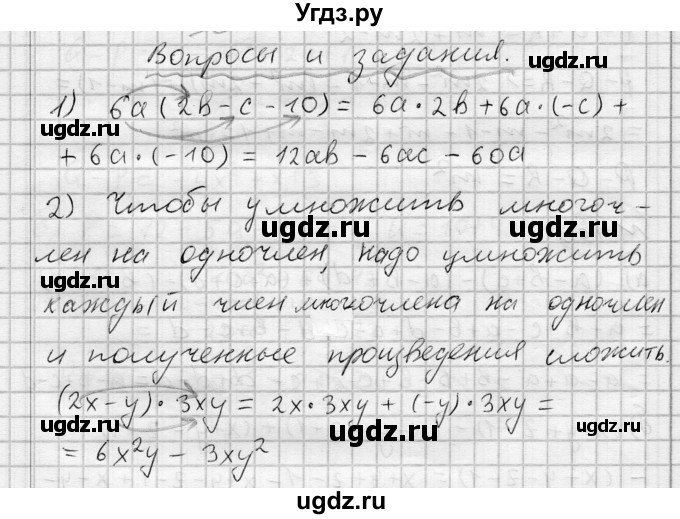 Угдз.ру
Вопросы и задания.
1) 6a(2b-c-10) = 6a·2b+6a·(-c)+
+6a·(-10) = 12ab-6ac-60a
2) Чтобы умножить многоч-
лен на одночлен, надо умножить
каждый член многочлена на одночлен
и полученные произведения сложить.
(2x-y)·3xy = 2x·3xy+(-y)·3xy =
= 6x²y-3xy²
ugdz.ru
ugdz.ru
ugdz.ru
ugdz.ru
ugdz.ru
ugdz.ru
ugdz.ru
ugdz.ru
ugdz.ru
ugdz.ru
ugdz.ru